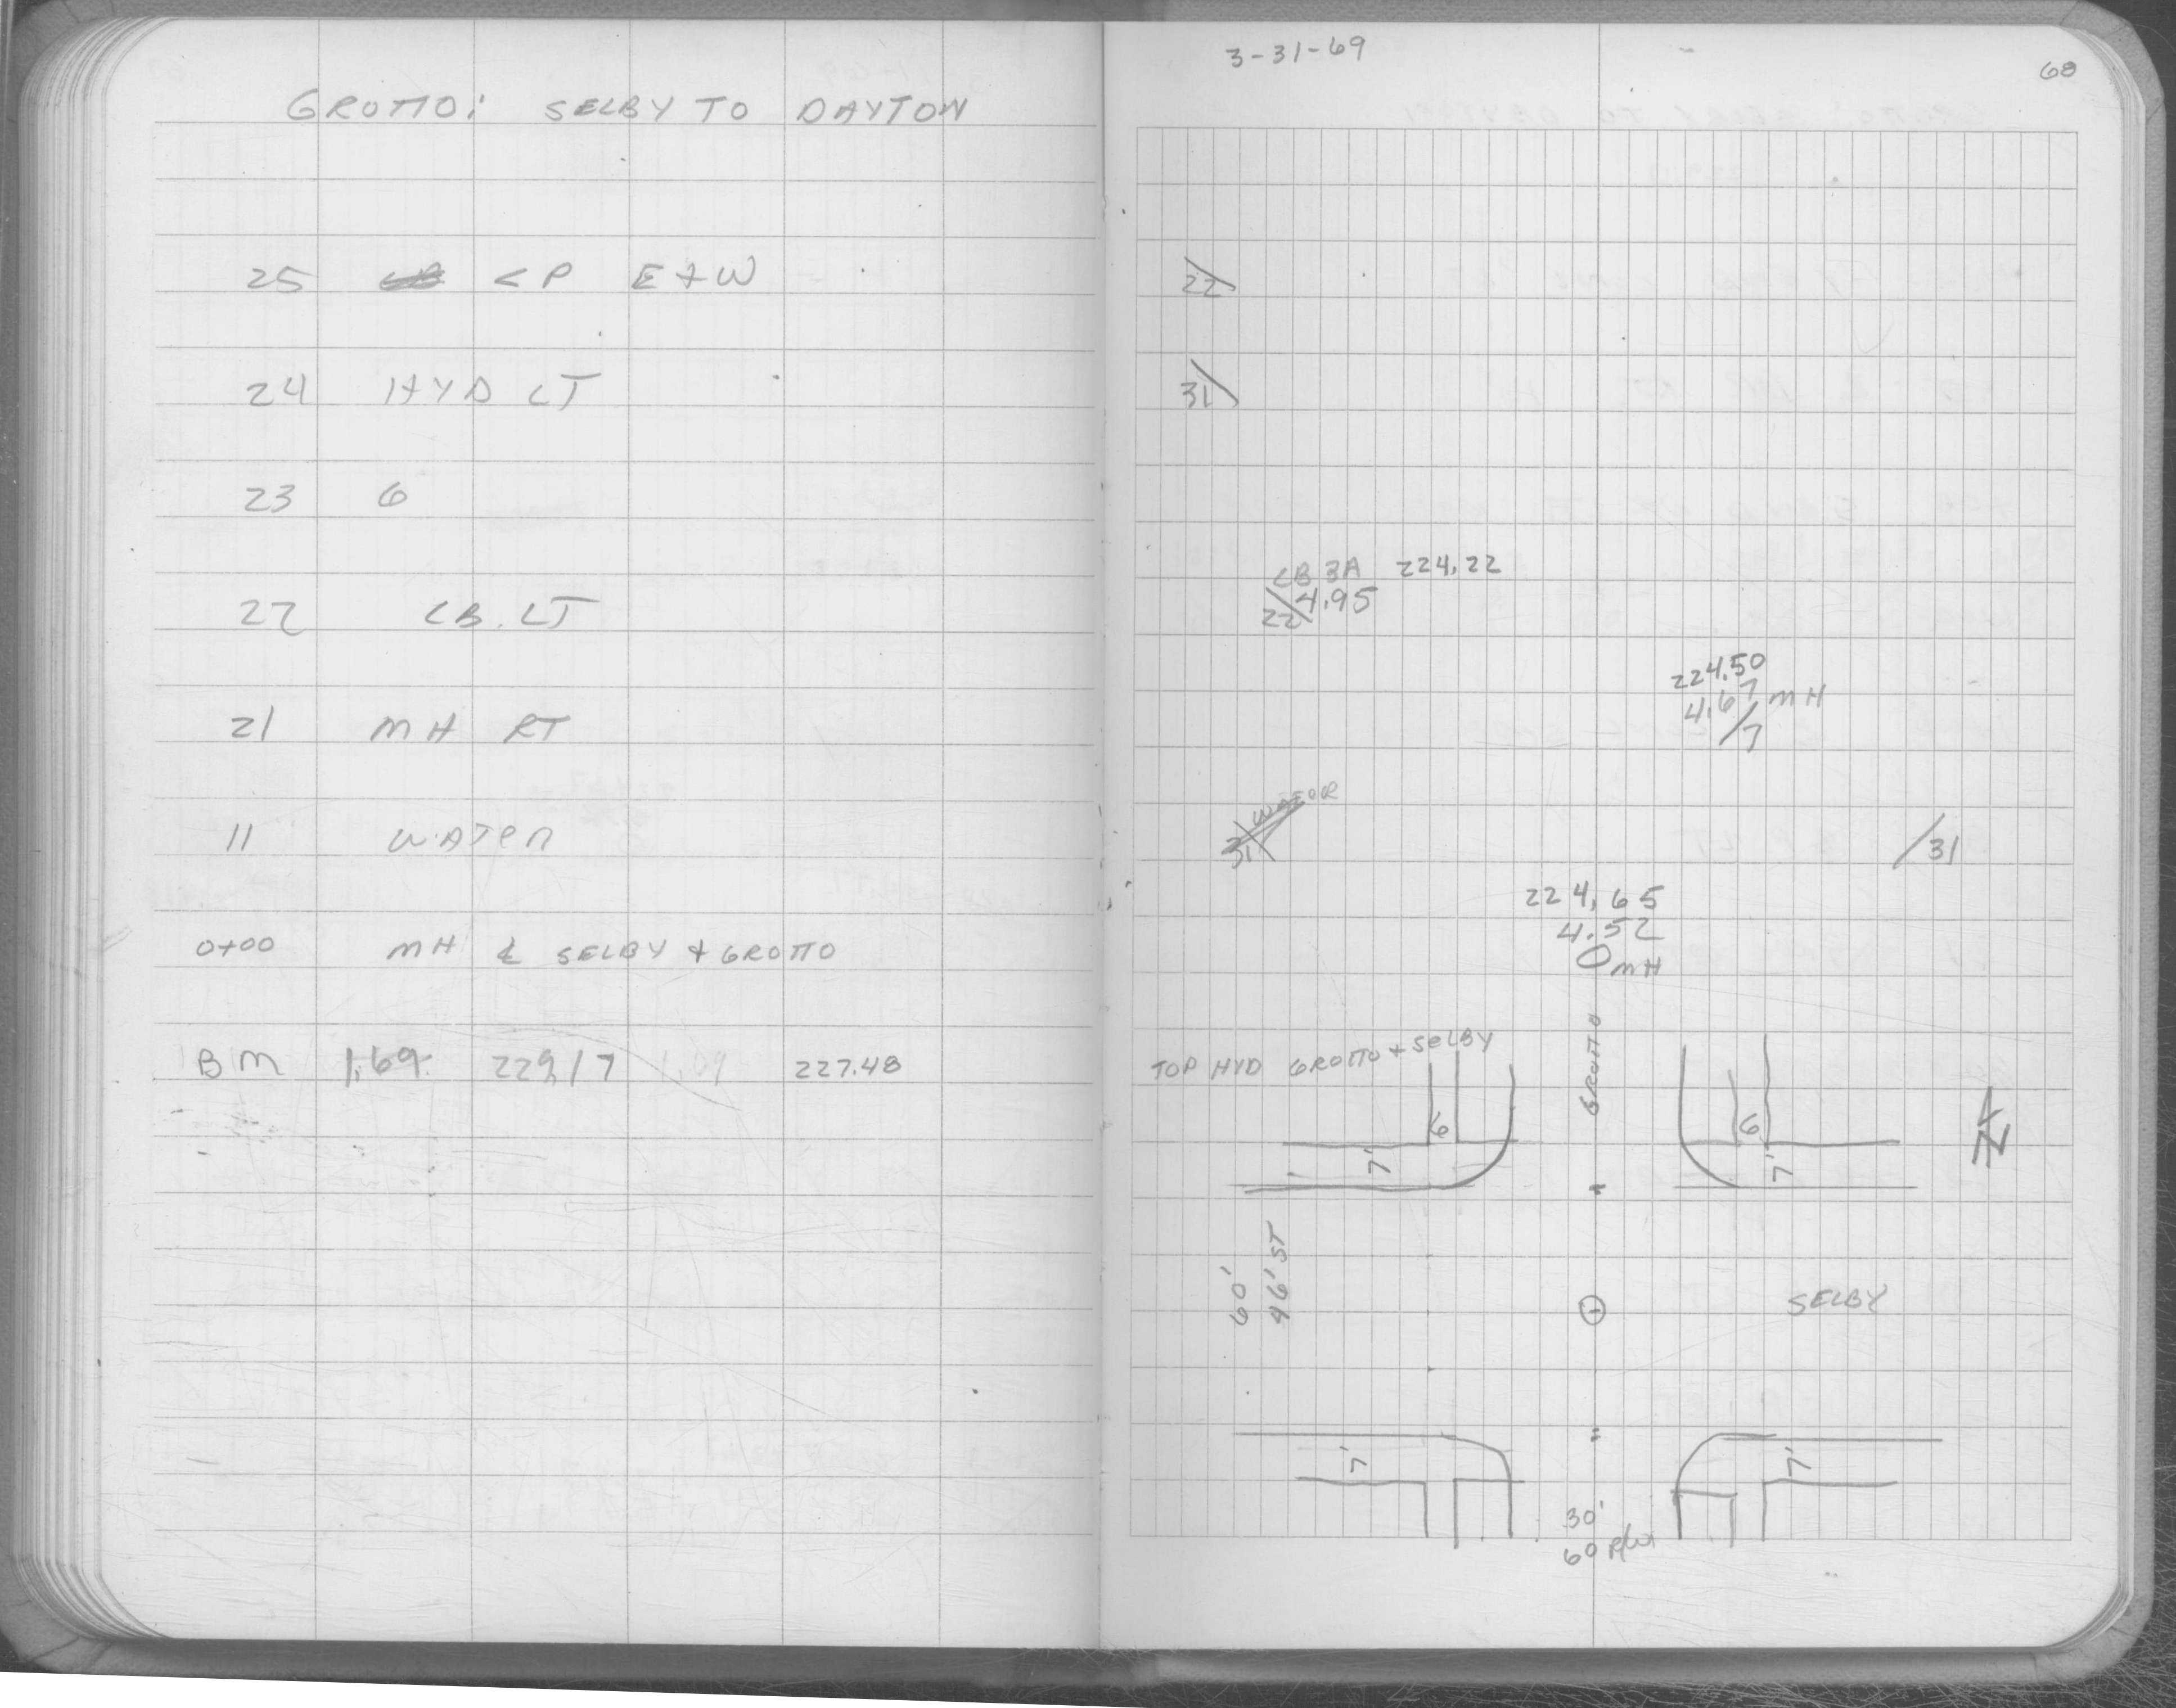 GROTTO: SELBY TO DAYTON
25 CP E+W
24 HYD LT
23 6
22 CB. LT
21 MH RT
11 WATER
0+00 MH ℄ SELBY + GROTTO
BM 1.69 229.17 227.48
3-31-69
68
22
31
CB 3A 224.22
22/4.95
224.50
4.67 MH
/7
WATER
31
/31
224.65
4.52
MH
TOP HYD GROTTO + SELBY
GROTTO
6
6
7'
7'
N
60'
46' ST
SELBY
7'
7'
30'
60 R/W